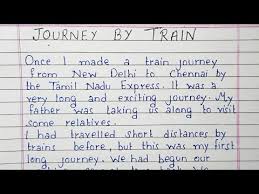 JOURNEY BY TRAIN
Once I made a train journey
from New Delhi to Chennai by
the Tamil Nadu Express. It was a
very long and exciting journey. My
father was taking us along to visit
some relatives.
I had travelled short distances by
trains before, but this was my first
long journey. We had begun our